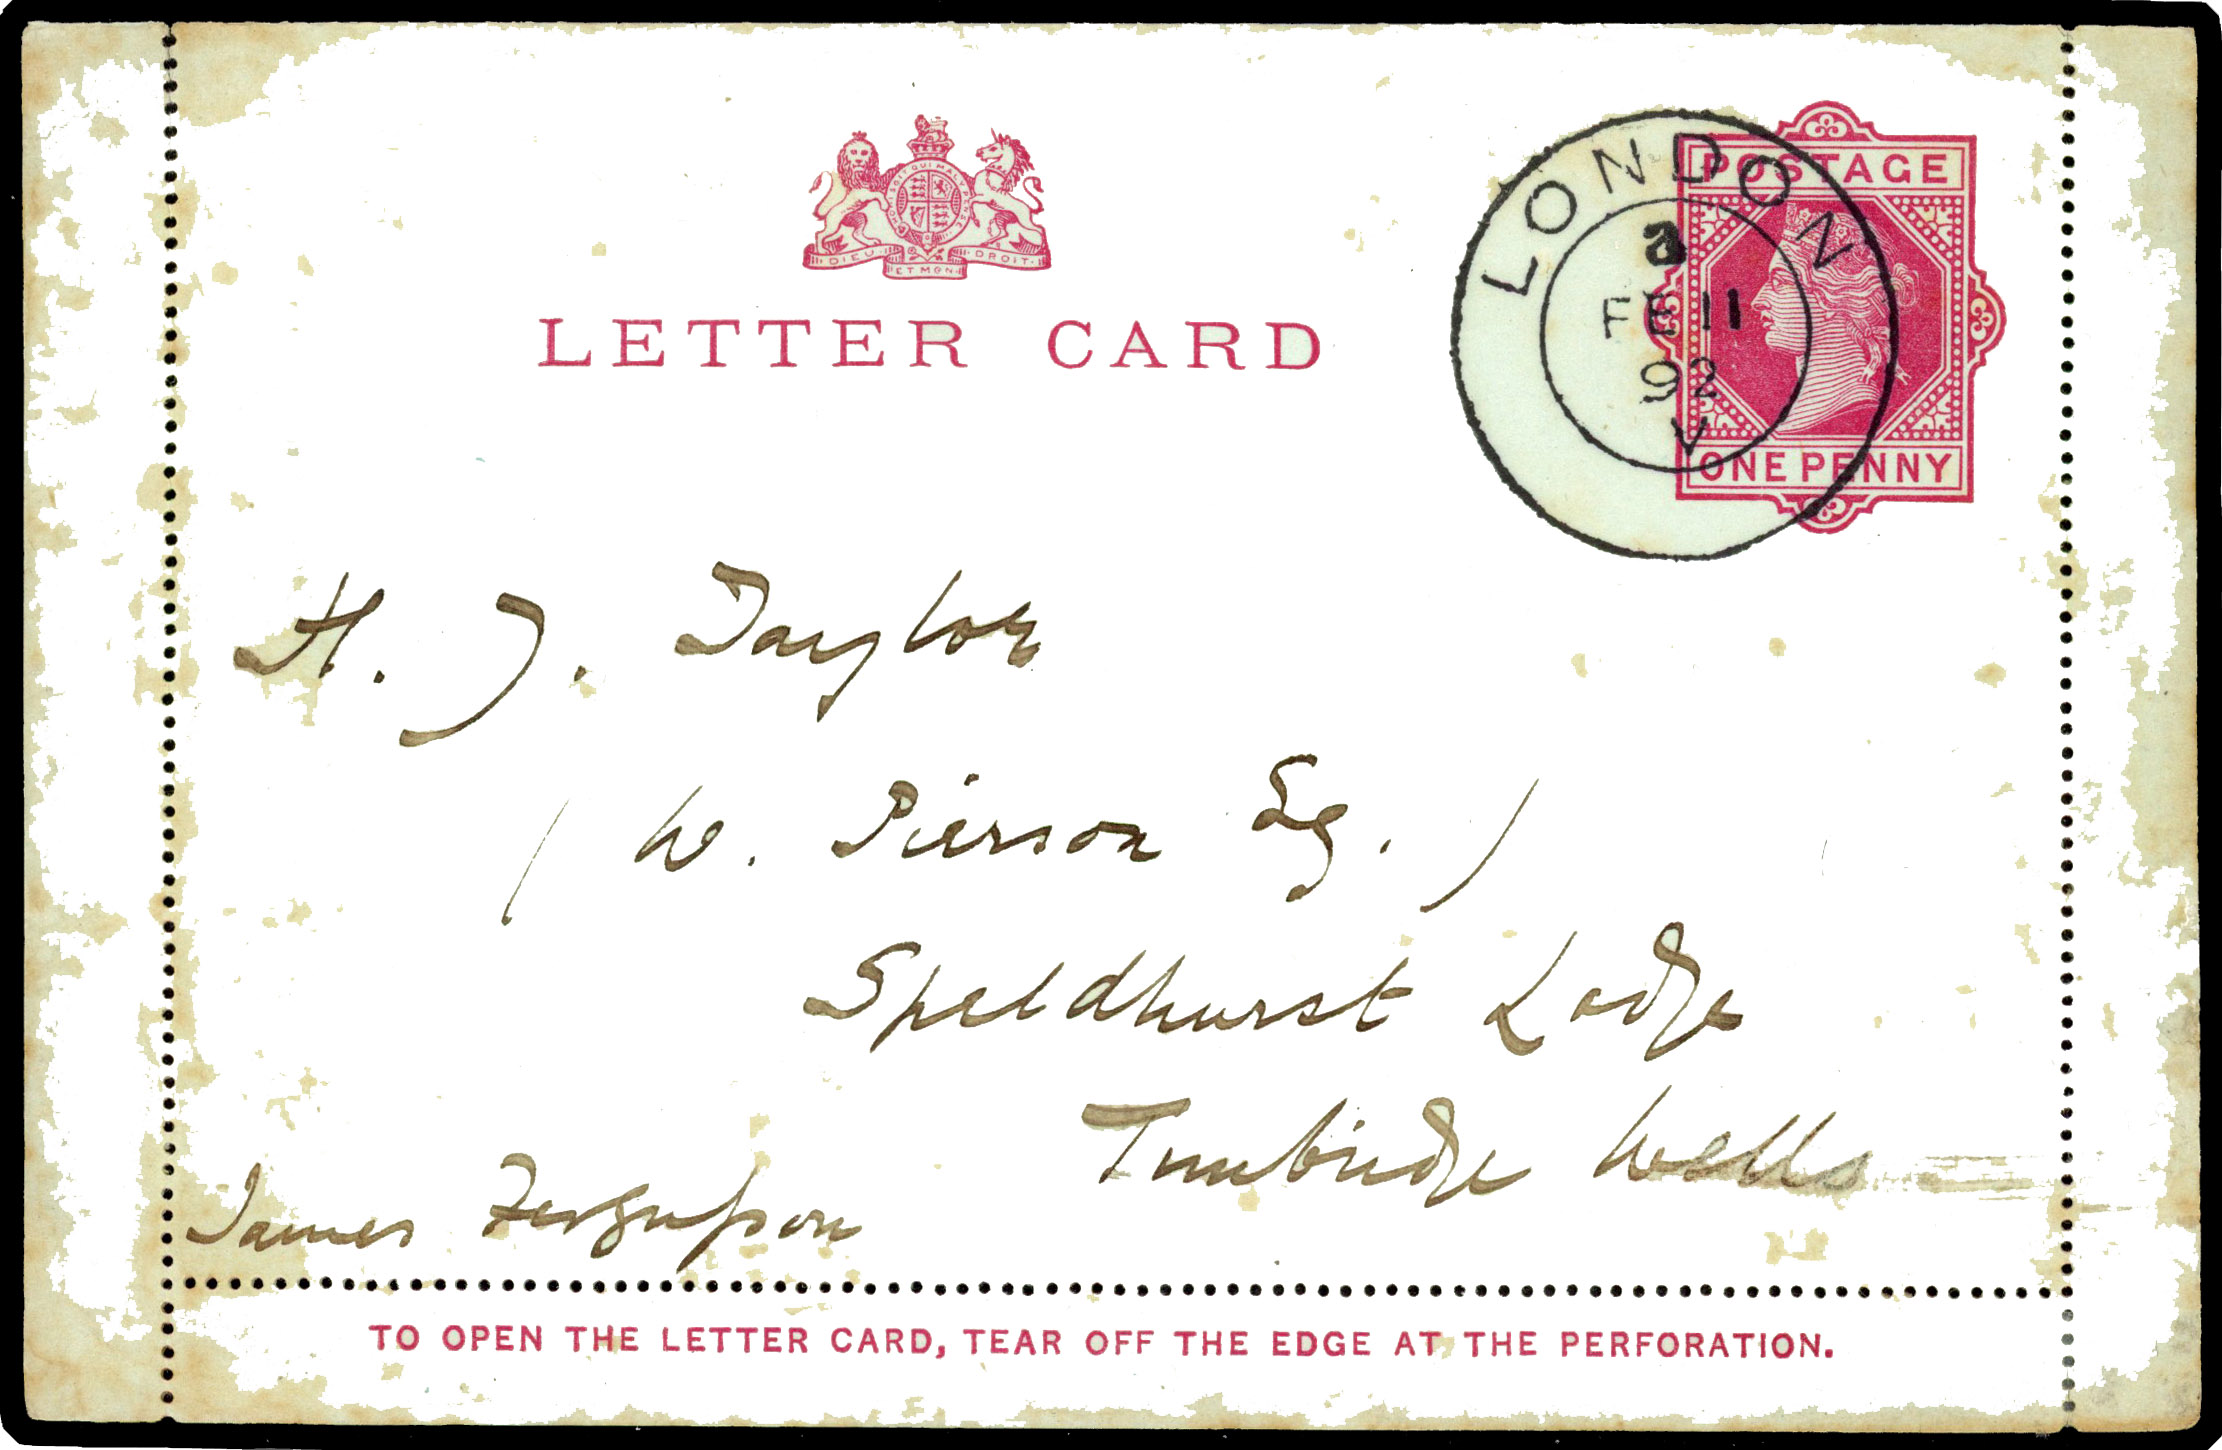 DIEU ET MON DROIT
LETTER CARD
POSTAGE
ONE PENNY
LONDON
a
FE 11
92
V
H. J. Taylor
(W. Pierson Esq.)
Speldhurst Lodge
Tunbridge Wells
James Fergusson
TO OPEN THE LETTER CARD, TEAR OFF THE EDGE AT THE PERFORATION.